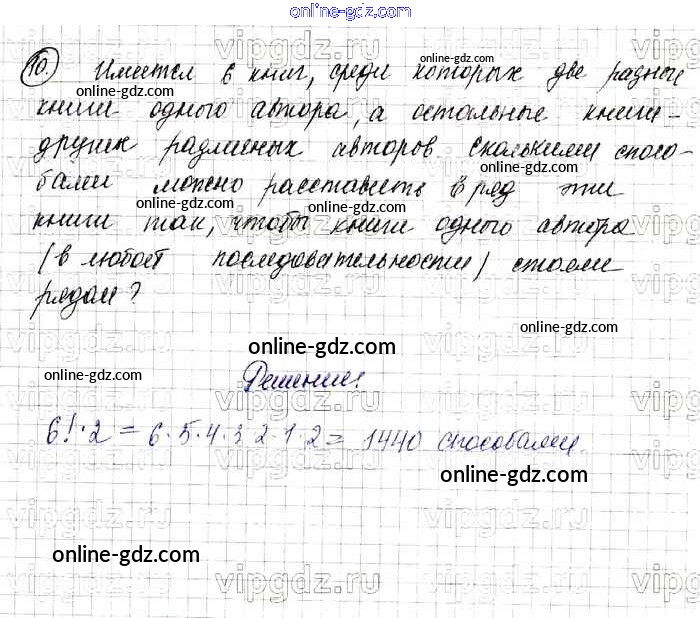 online-gdz.com
10. Имеется 6 книг, среди которых две разные
книги одного автора, а остальные книги -
других различных авторов Сколькими спосо-
бами можно расставить в ряд эти
книги так, чтобы книги одного автора
(в любой последовательности) стояли
рядом?
Решение:
6!·2 = 6·5·4·3·2·1·2 = 1440 способами.
online-gdz.com
online-gdz.com
online-gdz.com
online-gdz.com
online-gdz.com
online-gdz.com
online-gdz.com
online-gdz.com
online-gdz.com
online-gdz.com
online-gdz.com
online-gdz.com
vipgdz.ru